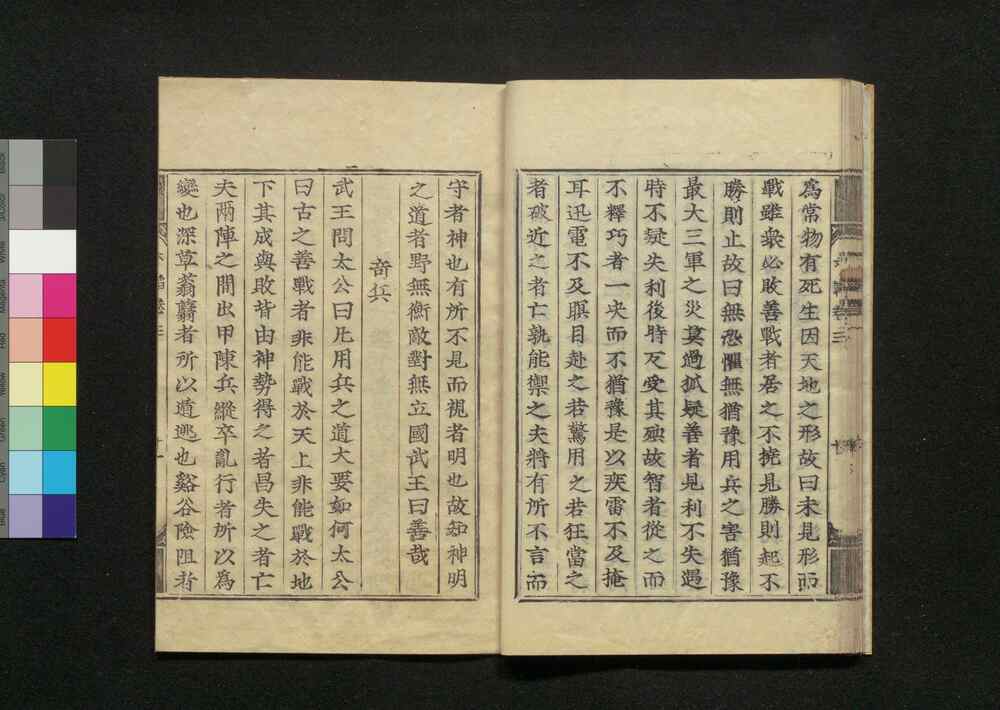 為常物有死生因天地之形故曰未見形而
戰雖衆必敗善戰者居之不撓見勝則起不
勝則止故曰無恐懼無猶豫用兵之害猶豫
最大三軍之災莫過狐疑善者見利不失遇
時不疑失利後時反受其殃故智者從之而
不釋巧者一决而不猶豫是以疾雷不及掩
耳迅電不及瞑目赴之若驚用之若狂當之
者破近之者亡孰能禦之夫將有所不言而
守者神也有所不見而視者明也故知神明
之道者野無衡敵對無立國武王曰善哉
奇兵
武王問太公曰凡用兵之道大要如何太公
曰古之善戰者非能戰於天上非能戰於地
下其成與敗皆由神勢得之者昌失之者亡
夫兩陣之間出甲陳兵縱卒亂行者所以為
變也深草蓊翳者所以遁逃也谿谷險阻者